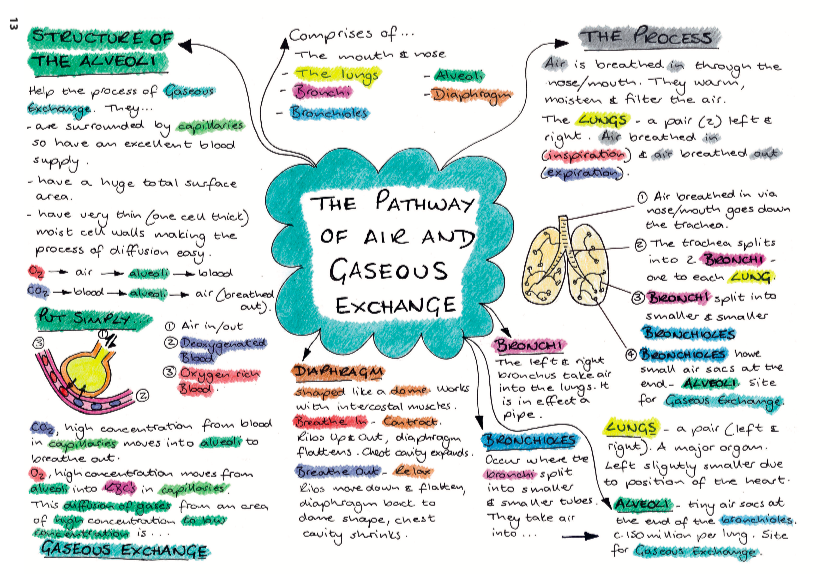 13
STRUCTURE OF
THE ALVEOLI
Help the process of Gaseous
Exchange. They...
- are surrounded by capillaries
so have an excellent blood
supply.
- have a huge total surface
area.
- have very thin (one cell thick)
moist cell walls making the
process of diffusion easy.
O2 → air → alveoli → blood
CO2 → blood → alveoli → air (breathed
out).
PUT SIMPLY
① Air in/out
② Deoxygenated
Blood
③ Oxygen rich
Blood.
①
③
②
CO2, high concentration from blood
in capillaries moves into alveoli to
breathe out.
O2, high concentration moves from
alveoli into RBC's in capillaries.
This diffusion of gases from an area
of high concentration to low
concentration is ...
GASEOUS EXCHANGE
Comprises of...
The mouth & nose
- The lungs
- Bronchi
- Bronchioles
- Alveoli
- Diaphragm
THE PATHWAY
OF AIR AND
GASEOUS
EXCHANGE
DIAPHRAGM
shaped like a dome. Works
with intercostal muscles.
Breathe In - Contract.
Ribs Up & Out, diaphragm
flattens. Chest cavity expands.
Breathe Out - Relax
Ribs move down & flatten,
diaphragm back to
dome shape, chest
cavity shrinks.
BRONCHI
The left & right
bronchus take air
into the lungs. It
is in effect a
pipe.
BRONCHIOLES
Occur where the
bronchi split
into smaller
& smaller tubes.
They take air
into ...
THE PROCESS
Air is breathed in through the
nose/mouth. They warm,
moisten & filter the air.
The LUNGS - a pair (2) left &
right. Air breathed in
(inspiration) & air breathed out
(expiration).
① Air breathed in via
nose/mouth goes down
the trachea.
② The trachea splits
into 2 BRONCHI -
one to each LUNG
③ BRONCHI split into
smaller & smaller
BRONCHIOLES
④ BRONCHIOLES have
small air sacs at the
end - ALVEOLI. Site
for Gaseous Exchange.
LUNGS - a pair (left &
right). A major organ.
Left slightly smaller due
to position of the heart.
ALVEOLI - tiny air sacs at
the end of the bronchioles.
c.150 million per lung. Site
for Gaseous Exchange.